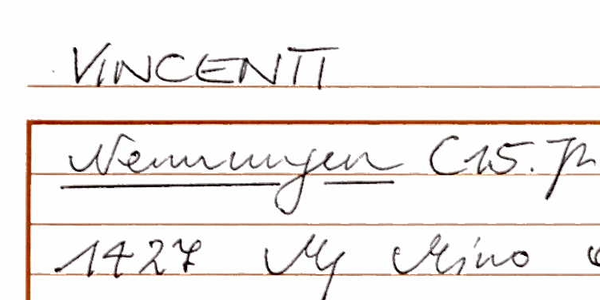 VINCENTI
Nennungen (15. Jh
1427 My Mino